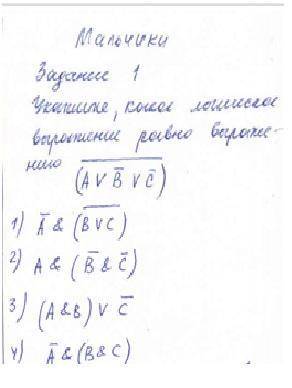 Мальчики
Задание 1
Укажите, какое логическое
выражение равно выраже-
нию (A ∨ B̅ ∨ C̅)̅
1) A̅ & (B ∨ C)̅
2) A & (B̅ & C̅)
3) (A & B) ∨ C̅
4) A̅ & (B & C)